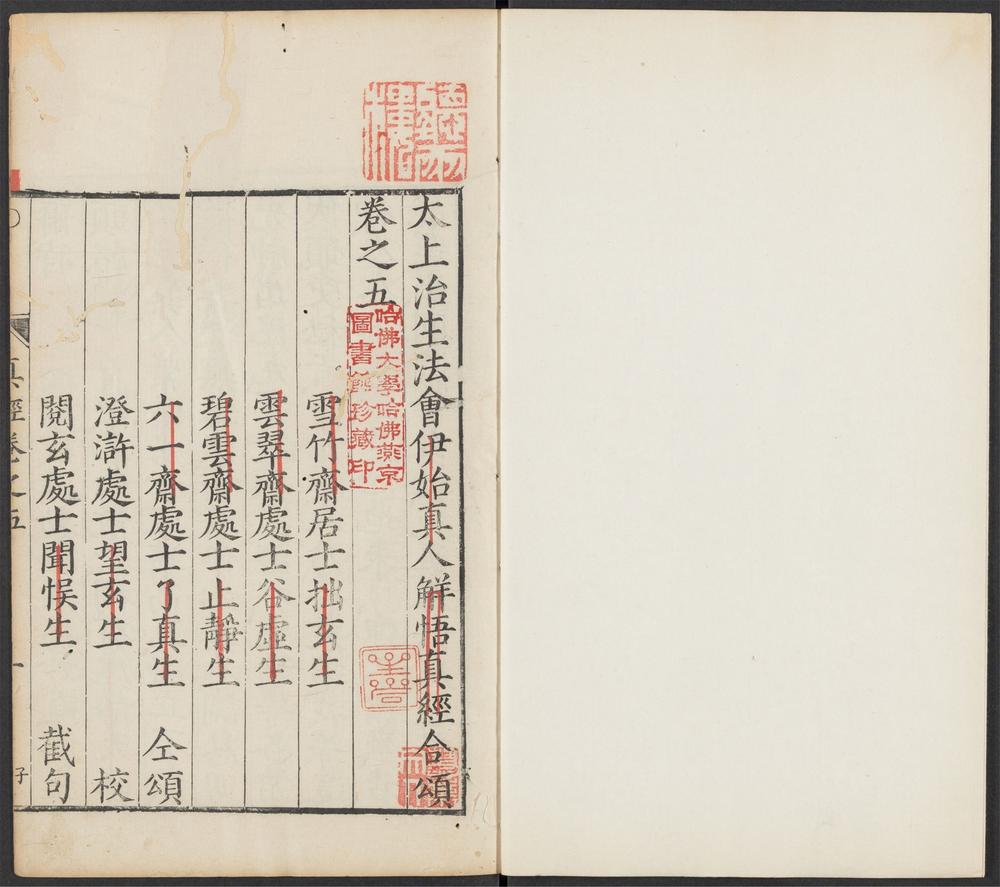 太上治生法會伊始真人解悟真經合頌
卷之五
哈佛大學哈佛燕京
圖書館珍藏印
雪竹齋居士拙玄生
雲翠齋處士谷虛生
碧雲齋處士止靜生
六一齋處士了真生 仝頌
澄滸處士望玄生 校
閱玄處士聞悞生 截句
真經卷之五 一
子